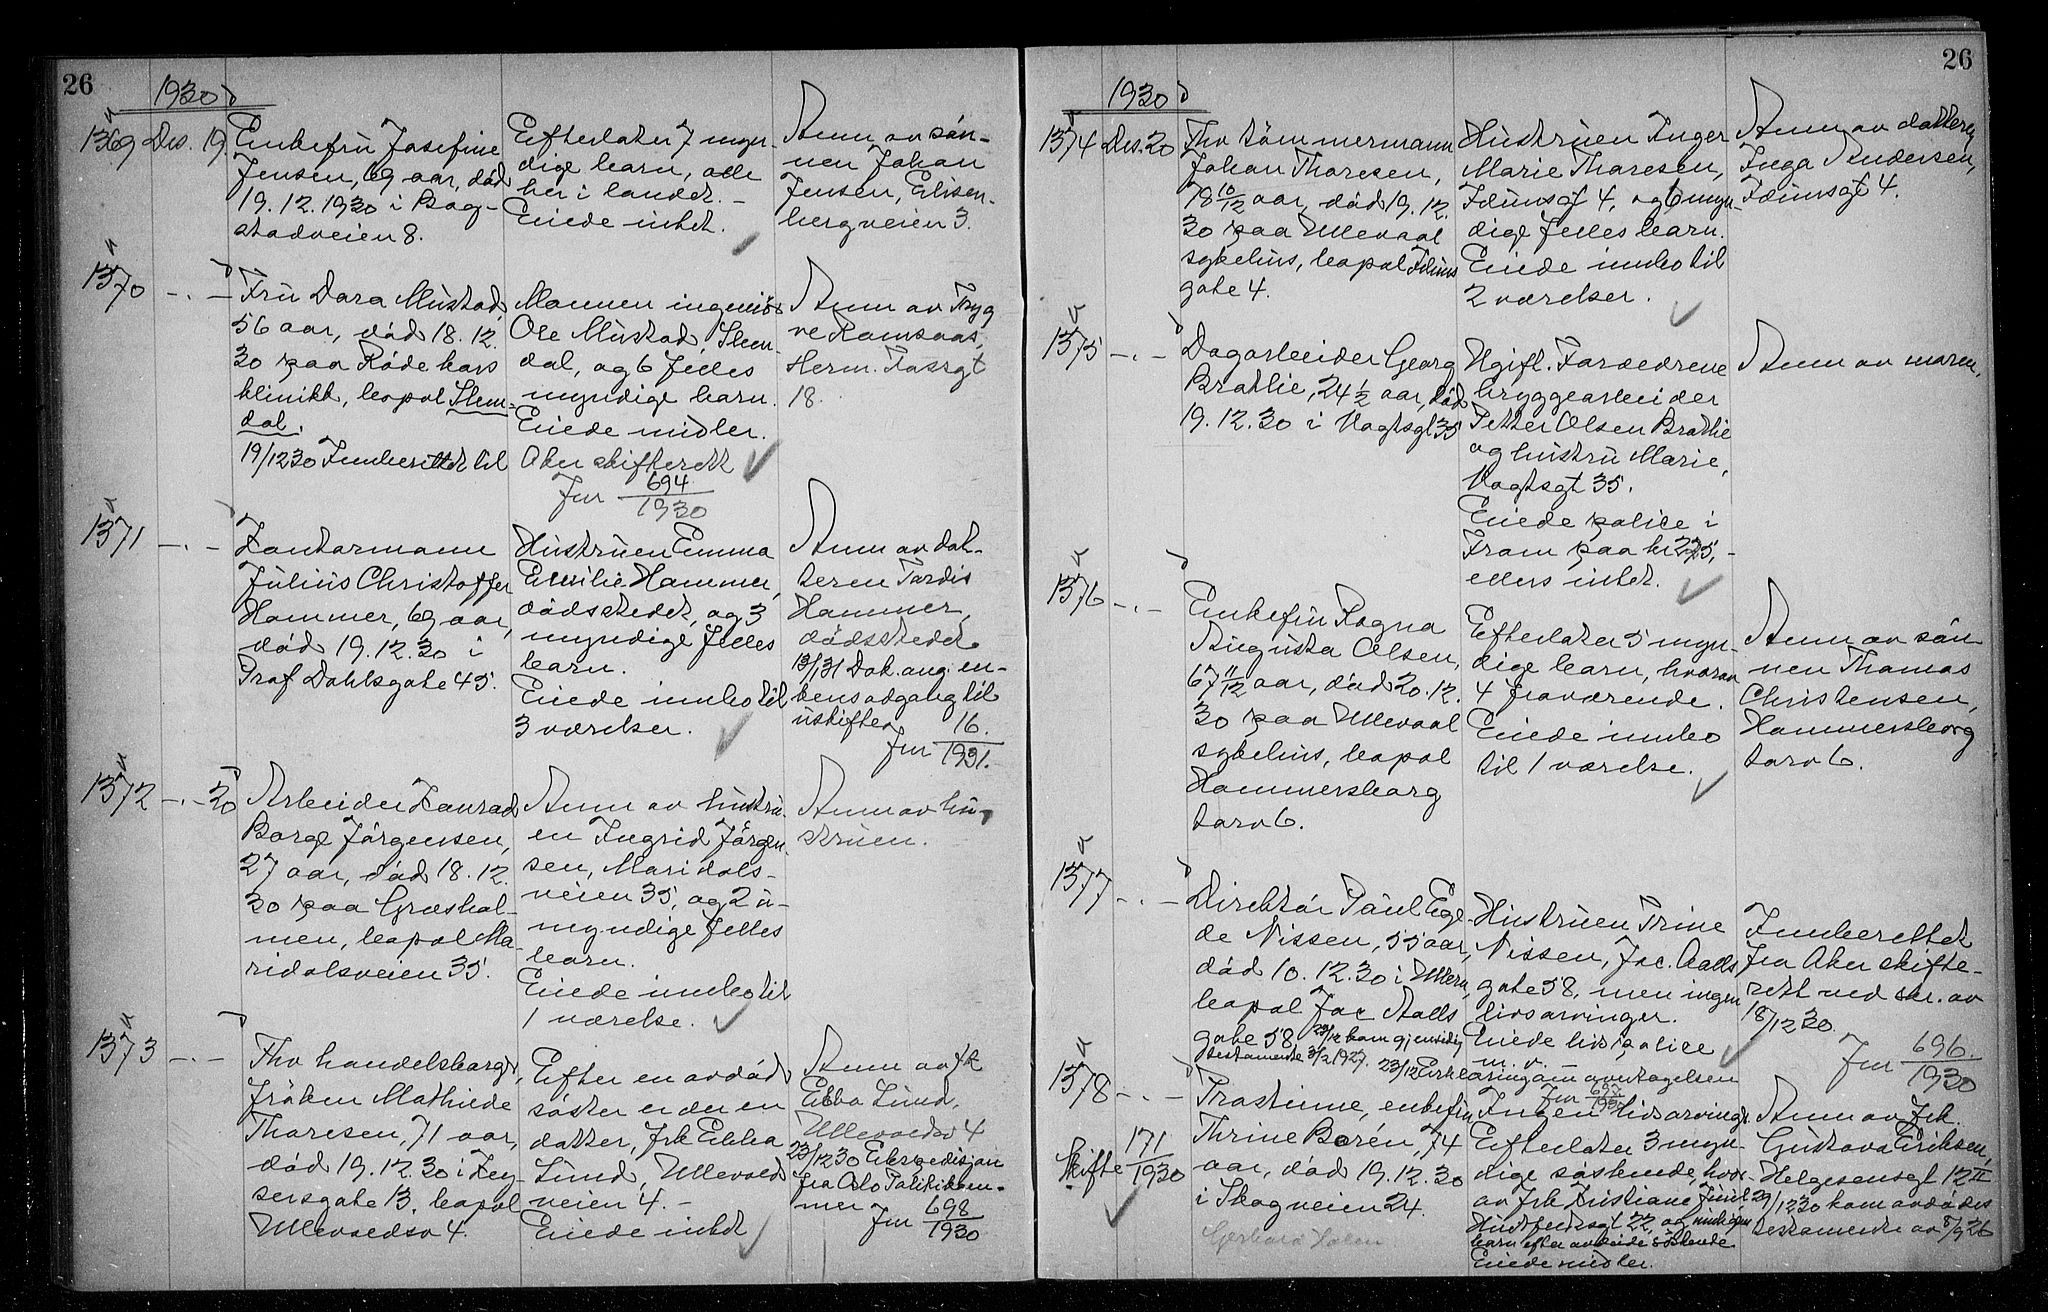 26
1930
1369 Des. 19.
Enkefru Josefine
Jensen, 69 aar, död
19.12.1930 i Bog-
stadveien 8.
Efterlater 7 myn-
dige barn, alle
her i landet. -
Eiede intet.
Anm. av søn-
nen Johan
Jensen, Eilisen-
bergveien 3.
1370 -.-
Fru Dora Mustad,
56 aar, död 18.12.
30 paa Röde kors
klinikk, bopæl Slem-
dal.
19/12 30 Innberettet til
Mannen ingeniör
Ole Mustad, Slem-
dal, og 6 felles
myndige barn.
Eiede midler.
Aker skifterett
Jnr 694
1930
Anm. av Tryg
ve Ramsaas,
Herm. Fossgt
18.
1371 -.-
Kontormann
Julius Christoffer
Hammer, 69 aar,
död 19.12.30 i
Prof Dahlsgate 45.
Hustruen Emma
Emilie Hammer,
dödsstedet, og 3
myndige felles
barn.
Eiede innbo til
3 værelser.
Anm. av dat-
teren Tordis
Hammer,
dödsstedet.
13/1 31 Dok. ang. en-
kens adgang til
uskifte
Jnr 16.
1931.
1372 -.- 20
Arbeider Konrad
Borge Jörgensen,
27 aar, död 18.12.
30 paa Græshol-
men, bopæl Ma-
ridalsveien 35.
Anm. av hustru-
en Ingrid Jörgen-
sen, Maridals-
veien 35, og 2 u-
myndige felles
barn.
Eiede innbo til
1 værelse.
Anm. av hu-
struen.
1373 -.-
Fhv handelsborger,
fröken Mathilde
Thoresen, 71 aar,
död 19.12.30 i Key-
sersgate 13, bopæl
Ullevoldsv 4.
Efter en avdöd
söster er der en
datter, frk Ebba
Lund, Ullevolds
veien 4. -
Eiede intet
Anm av frk
Ebba Lund,
Ullevoldsv 4
23/12 30 Ekspedisjon
fra Oslo Politikam-
mer
Jnr 698
1930
26
1930
1374 Des. 20
Fhv tömmermann
Johan Thoresen,
78 10/12 aar, död 19.12.
30 paa Ullevaal
sykehus, bopæl Iduns
gate 4.
Hustruen Inger
Marie Thoresen,
Idunsgt 4, og 6 myn-
dige felles barn.
Eiede innbo til
2 værelser.
Anm. av datteren
Inga Andersen,
Idunsgt 4.
1375 -.-
Dagarbeider Georg
Bratlie, 24 1/2 aar, död
19.12.30 i Vogtsgt 35
Ugift. Foreldrene
bryggearbeider
Petter Olsen Bratlie
og hustru Marie,
Vogtsgt 35.
Eiede police i
Fram paa kr 225, -
ellers intet.
Anm av moren.
1376 -.-
Enkefru Ragna
Augusta Olsen,
67 11/12 aar, död 20.12.
30 paa Ullevaal
sykehus, bopæl
Hammersborg
torv 6.
Efterlater 5 myn-
dige barn, hvorav
4 fraværende.
Eiede innbo
til 1 værelse.
Anm. av søn-
nen Thomas
Christensen,
Hammersborg
torv 6.
1377 -.-
Direktör Paul Ege-
de Nissen, 55 aar,
död 10.12.30 i Ullern,
bopæl Jac Aalls
gate 58
23/12 kom gjensidig
testamente 3/2 1927.
Hustruen Trine
Nissen, Jac. Aalls
gate 58, men ingen
livsarvinger.
Eiede livspolice
m. v.
23/12 Erklæring om overtagelsen
Jnr 697
1930
Innberettet
fra Aker skifte-
rett ved skr. av
18/12 30.
Jnr 696.
1930
1378 -.-
Skifte 171
1930
Frostinne, enkefru
Thrine Borén, 74
aar, död 19.12.30
i Skogveien 24.
Ingen livsarvinger
Efterlater 3 myn-
dige söskende, hvor-
av frk Kristiane Juul
22, og
barn efter avdöde söskende
Eiede midler.
Anm av frk.
Gustava Eriksen,
Helgesensgt 12 II
29/12 30 kom avdödes
testamente av 8/9 26